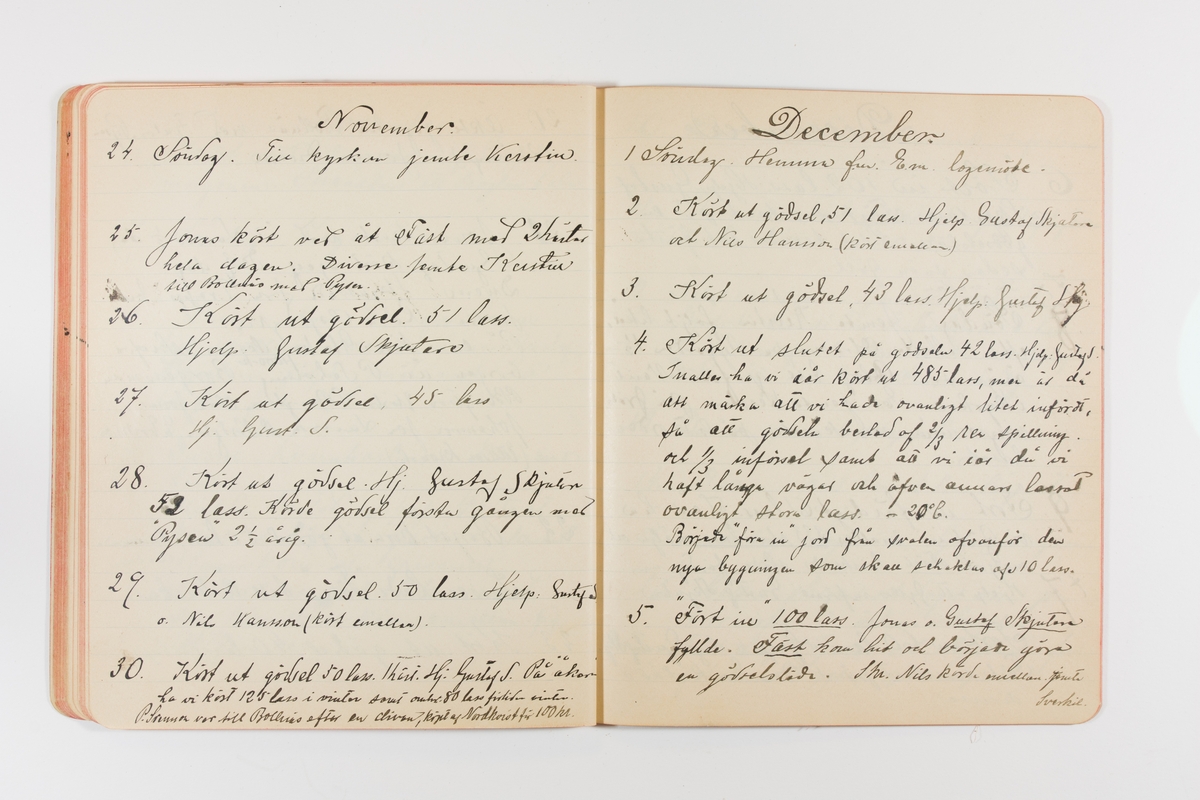 November.
24. Söndag. Till kyrkan jemte Kerstin.
25. Jonas kört ved åt Fäst med 2 hästar
hela dagen. Diverse jemte Kerstin
till Bollnäs med Pysen.
26. Kört ut gödsel. 51 lass.
Hjelp. Gustaf Skjutare
27. Kört ut gödsel, 45 lass
Hj. Gust. S.
28. Kört ut gödsel. Hj. Gustaf Skjutare
52 lass. Körde gödsel första gången med
"Pysen" 2 ½ årig.
29. Kört ut gödsel. 50 lass. Hjelp: Gustaf
o. Nils Hansson (kört emellan).
30. Kört ut gödsel 50 lass. Hj. Gustaf S. På
ha vi kört 125 lass i vinter samt 80 lass vinter.
var till Bollnäs efter en divan, köpt af Nordkvist för 100 kr.
December.
1 Söndag. Hemma fm. Em. logemöte.
2. Kört ut gödsel, 51 lass. Hjelp Gustaf Skjutare
och Nils Hansson (kört emellan)
3. Kört ut gödsel, 43 lass. Hjelp. Gustaf Skj.
4. Kört ut slutet på gödseln 42 lass. Hjelp. Gustaf S.
Inalles ha vi i år kört ut 485 lass, men är då
att märka att vi hade ovanligt litet infördt,
så att gödseln bestod af 2/3 ren spillning.
och 1/3 införsel samt att vi i år då vi
haft långa vägar och äfven annars lassat
ovanligt stora lass. - 20°C.
Började "föra in" jord från svalen ofvanför den
nya bygningen som skall schaktas af 10 lass.
5. "Fört in" 100 lass. Jonas o. Gustaf Skjutare
fyllde. Fäst kom hit och började göra
en gödselsläde. Nils körde emellan jemte
Sverkil.